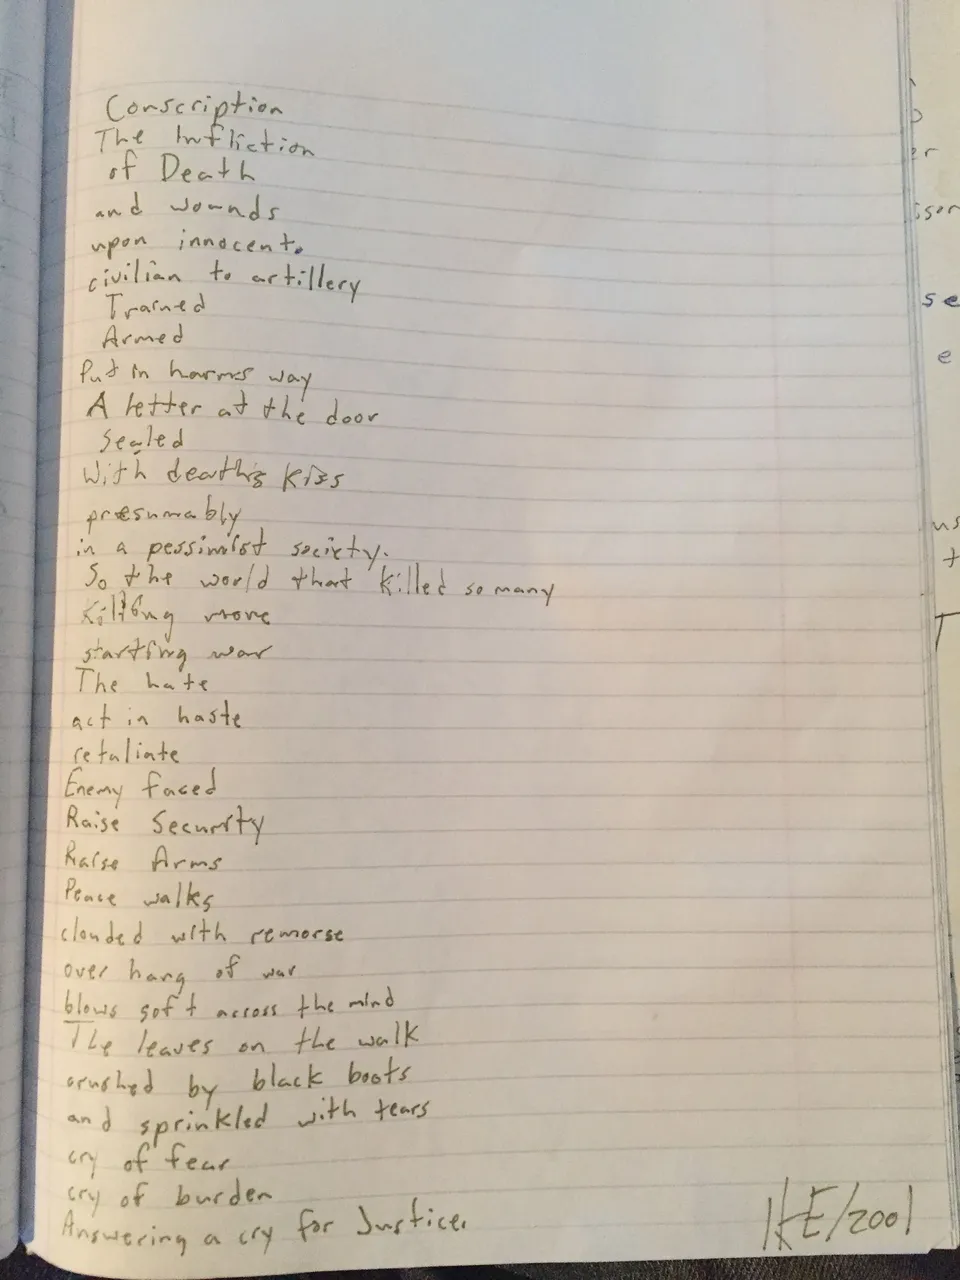 Conscription
The Infliction
of Death
and wounds
upon innocent.
civilian to artillery
Trained
Armed
Put in harms way
A letter at the door
Sealed
With death's kiss
presumably
in a pessimist society.
So the world that killed so many
Killing more
starting war
The hate
act in haste
retaliate
Enemy faced
Raise Security
Raise Arms
Peace walks
clouded with remorse
over hang of war
blows soft across the mind
The leaves on the walk
crushed by black boots
and sprinkled with tears
cry of fear
cry of burden
Answering a cry for Justice.
KE/2001
er
se
e
us
t